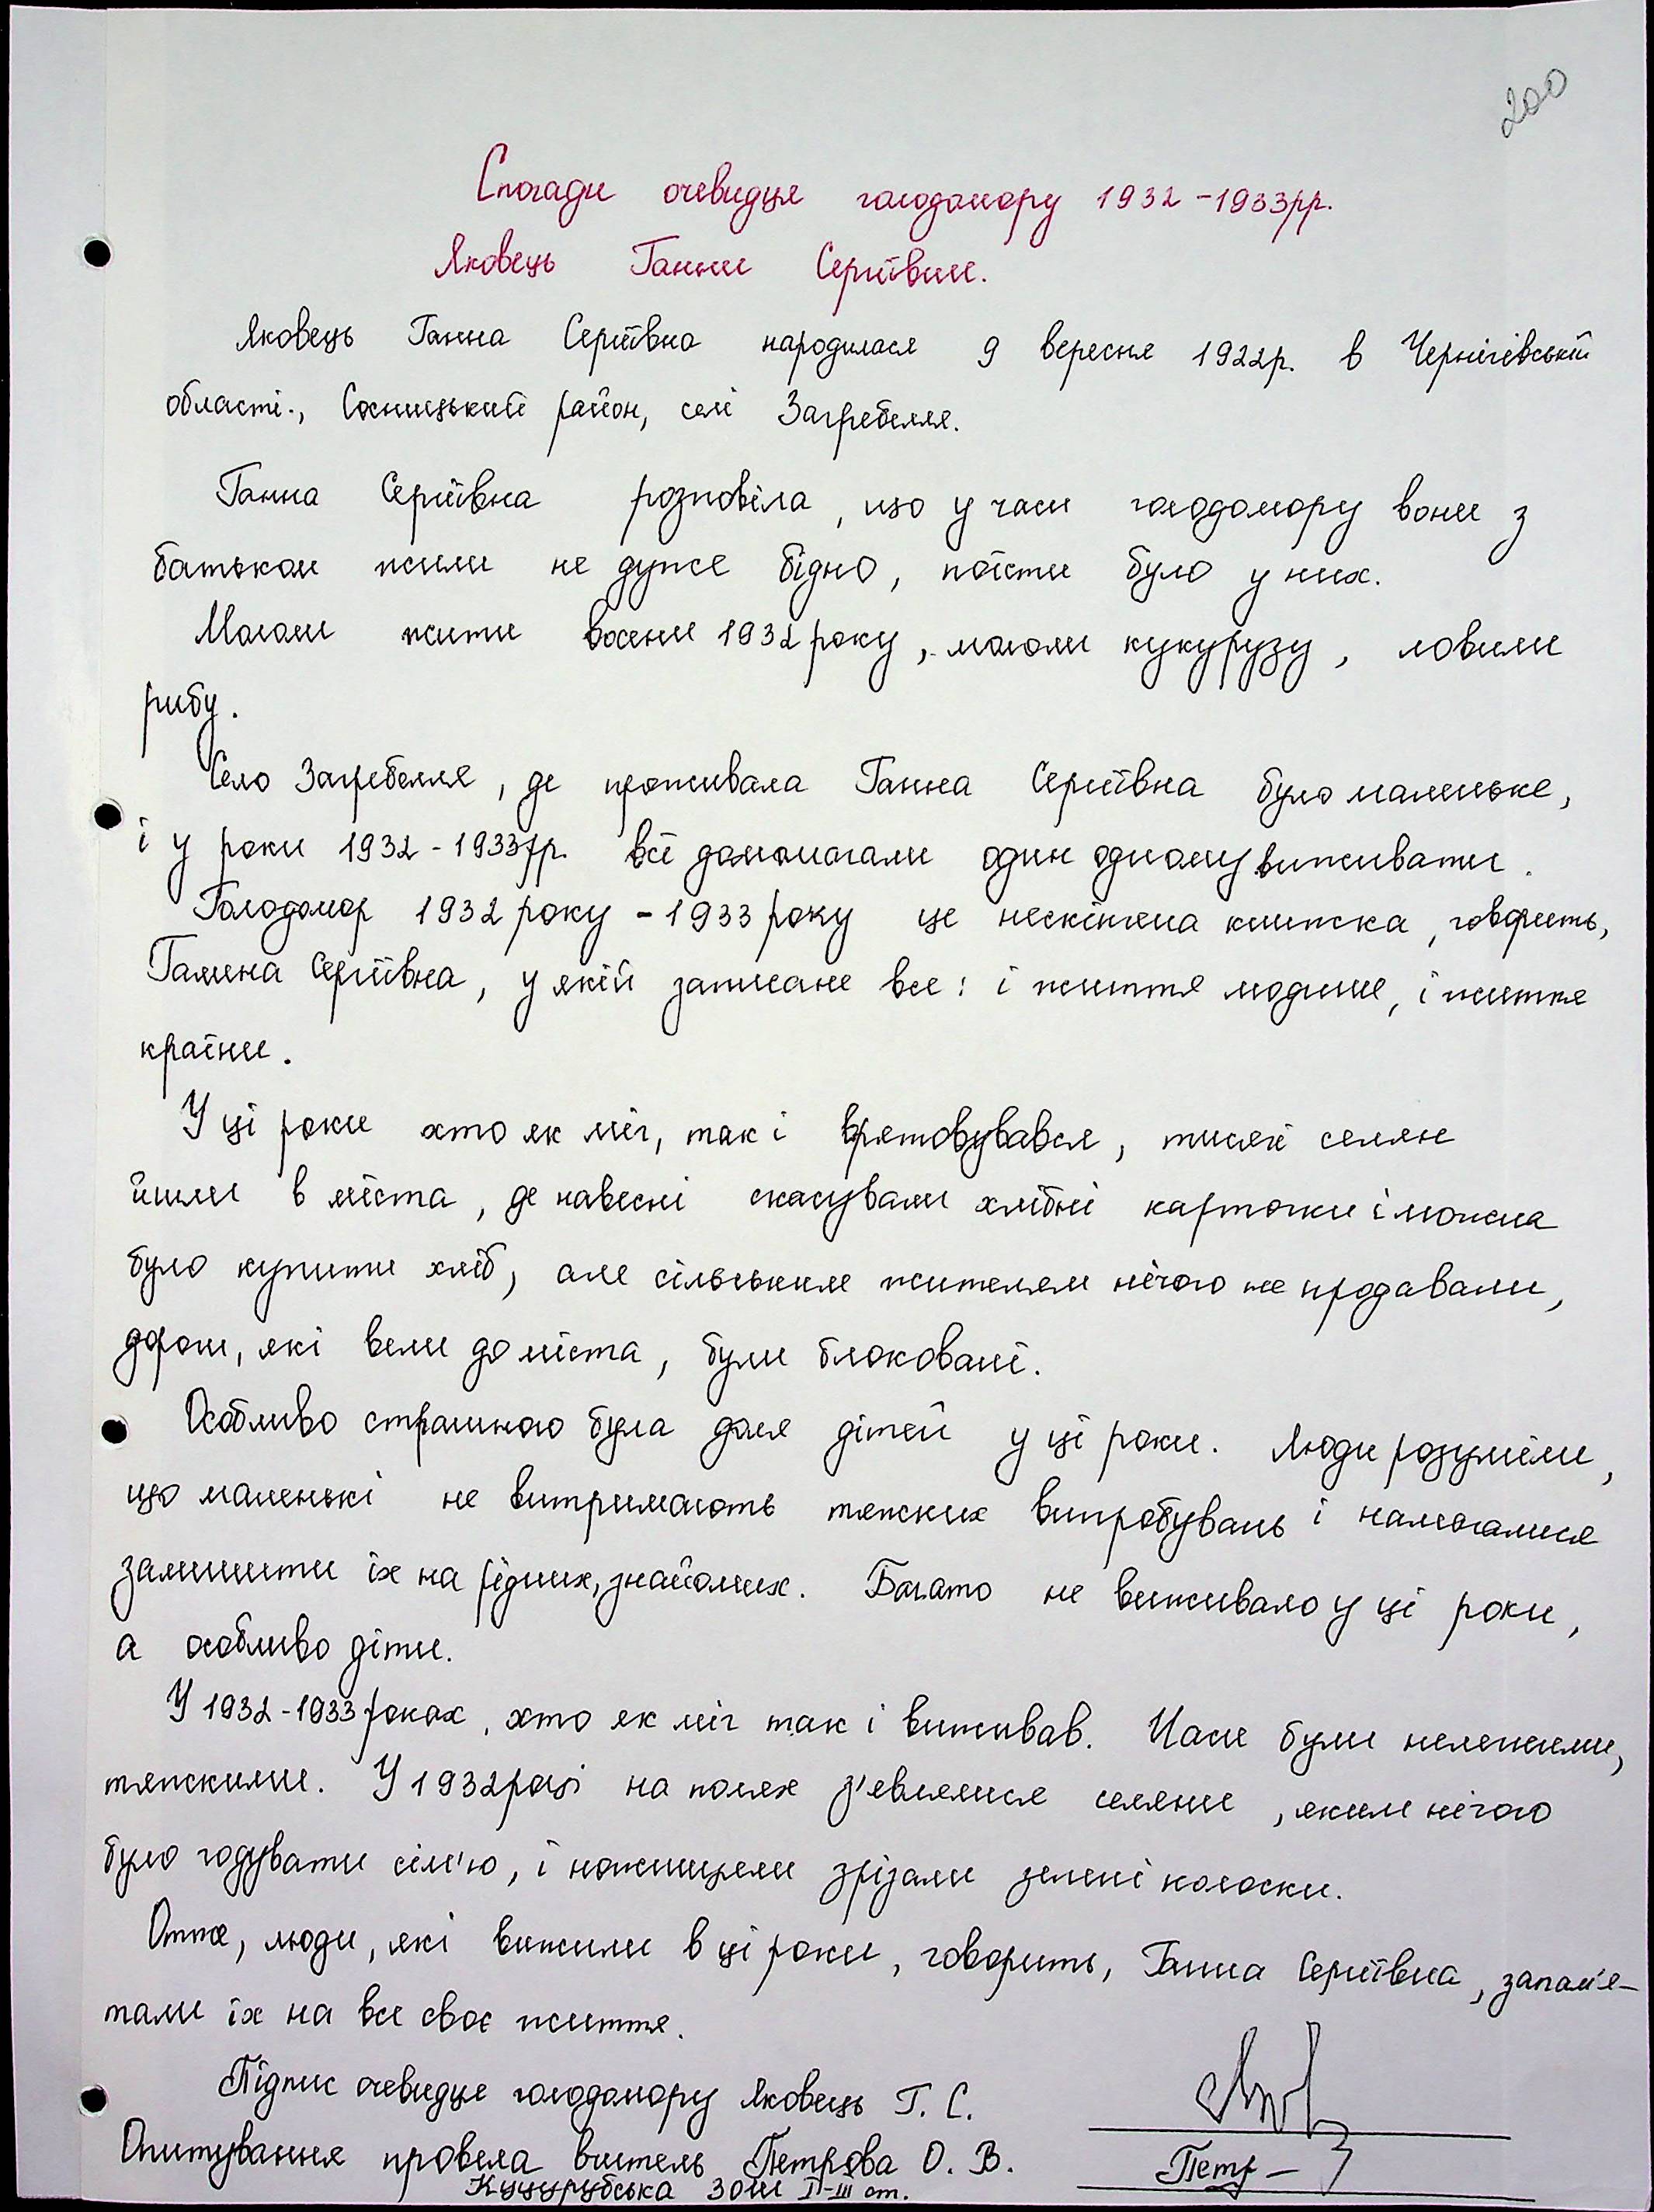 200
Спогади очевидця голодомору 1932-1933рр.
Яковець Ганни Сергіївни.
Яковець Ганна Сергіївна народилася 9 вересня 1922р. в Чернігівській
області., Сосницький район, селі Загребелля.
Ганна Сергіївна розповіла, що у часи голодомору вони з
батьком жили не дуже бідно, поїсти було у них.
Мололи жито восени 1932 року, мололи кукурузу, ловили
рибу.
Село Загребелля, де проживала Ганна Сергіївна було маленьке,
і у роки 1932-1933рр. всі допомагали один одному виживати.
Голодомор 1932 року - 1933 року це нескінчена книжка, говорить,
Галина Сергіївна, у якій записане все: і життя людини, і життя
країни.
У ці роки хто як міг, так і врятовувався, тисячі селян
йшли в міста, де навесні скасували хлібні карточки і можна
було купити хліб, але сільським жителям нічого не продавали,
дороги, які вели до міста, були блоковані.
Особливо страшною була доля дітей у ці роки. Люди розуміли,
що маленькі не витримають тяжких випробувань і намагалися
залишити їх на рідних, знайомих. Багато не виживало у ці роки,
а особливо діти.
У 1932-1933 роках, хто як міг так і виживав. Часи були нелегкими,
тяжкими. У 1932 році на полях з'являлися селяни, яким нічого
було годувати сім'ю, і ножицями зрізали зелені колоски.
Отже, люди, які вижили в ці роки, говорить, Ганна Сергіївна, запам'я-
тали їх на все своє життя.
Підпис очевидця голодомору Яковець Г. С.
Опитування провела вчитель Петрова О. В. Петр
Куцурубська ЗОШ І-ІІІ ст.